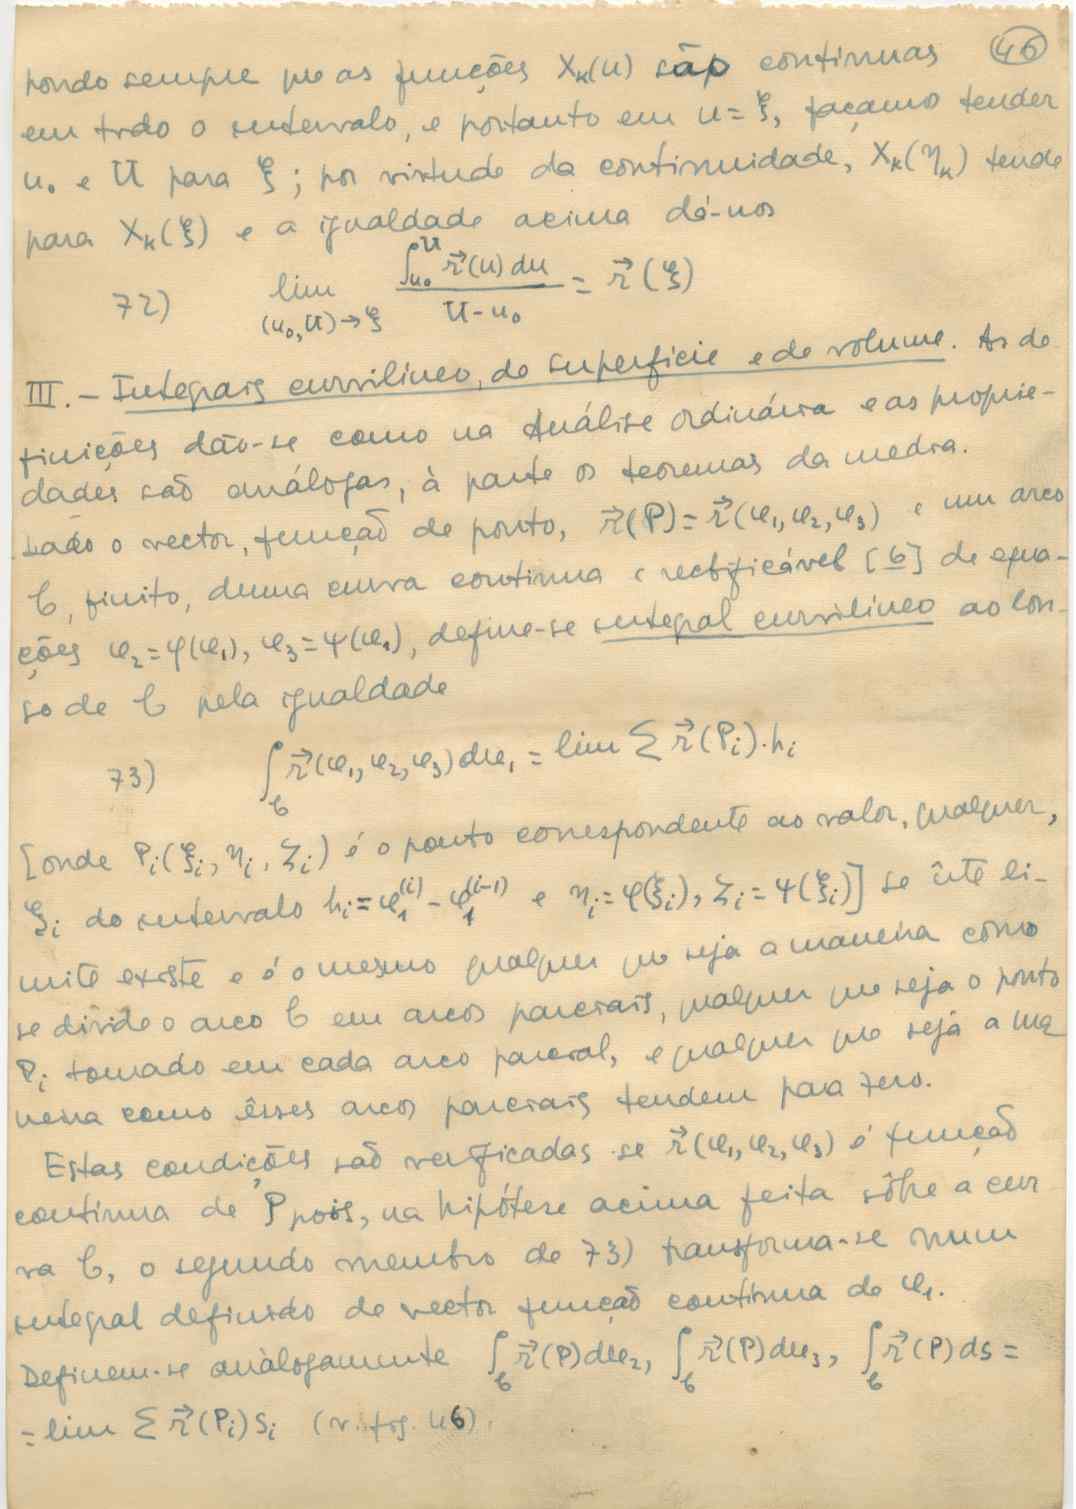 46
pondo sempre que as funções Xₖ(u) são contínuas
em todo o intervalo, e portanto em u = ξ, façamos tender
u₀ e U para ξ ; por virtude da continuidade, Xₖ(ηₖ) tende
para Xₖ(ξ) e a igualdade acima dá-nos
72) lim (u₀,U)→ξ ∫ᵤ₀ᵁ r⃗(u) du / (U - u₀) = r⃗(ξ)
III. — Integrais curvilíneo, de superfície e de volume. As de
finições dão-se como na Análise ordinária e as proprie-
dades são análogas, à parte os teoremas da média.
Dado o vector, função de ponto, r⃗(P) = r⃗(u₁, u₂, u₃) e um arco
C, finito, duma curva contínua e rectificável [6] de equa-
ções u₂ = φ(u₁), u₃ = ψ(u₁), define-se integral curvilíneo ao lon-
go de C pela igualdade
73) ∫_C r⃗(u₁, u₂, u₃) du₁ = lim Σ r⃗(Pᵢ)·hᵢ
[onde Pᵢ(ξᵢ, ηᵢ, ζᵢ) é o ponto correspondente ao valor, qualquer,
ξᵢ do intervalo hᵢ = u₁⁽ⁱ⁾ - u₁⁽ⁱ⁻¹⁾ e ηᵢ = φ(ξᵢ), ζᵢ = ψ(ξᵢ)] se êste li-
mite existe e é o mesmo qualquer que seja a maneira como
se divide o arco C em arcos parciais, qualquer que seja o ponto
Pᵢ tomado em cada arco parcial, e qualquer que seja a ma
neira como êsses arcos parciais tendem para zero.
Estas condições são verificadas se r⃗(u₁, u₂, u₃) é função
contínua de P pois, na hipótese acima feita sôbre a cur
va C, o segundo membro de 73) transforma-se num
integral definido de vector função contínua de u₁.
Definem-se anàlogamente ∫_C r⃗(P) du₂, ∫_C r⃗(P) du₃, ∫_C r⃗(P) ds =
= lim Σ r⃗(Pᵢ) sᵢ (v. fig. 46).